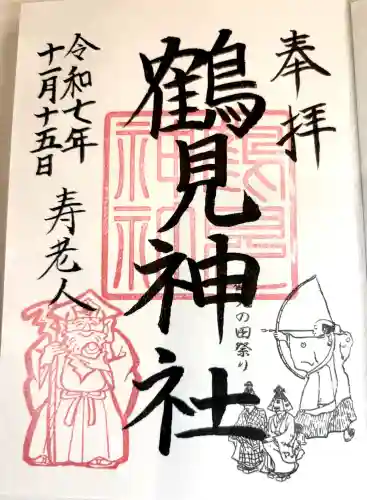 奉拝
鶴見神社
令和七年
十一月十五日
寿老人
の田祭り